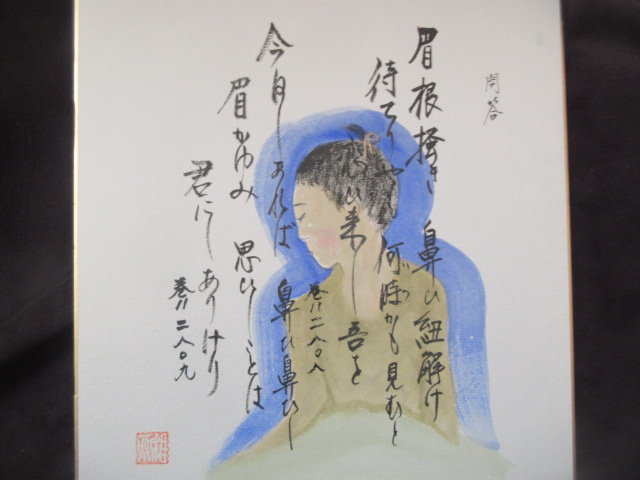 問答
眉根掻き 鼻ひ紐解け
待てりや 何時かも見むと
恋ひ来し吾を
巻11 二八〇八
今日しあれば 鼻ひ鼻ひし
眉かゆみ 思ひしことは
君にしありけり
巻11 二八〇九